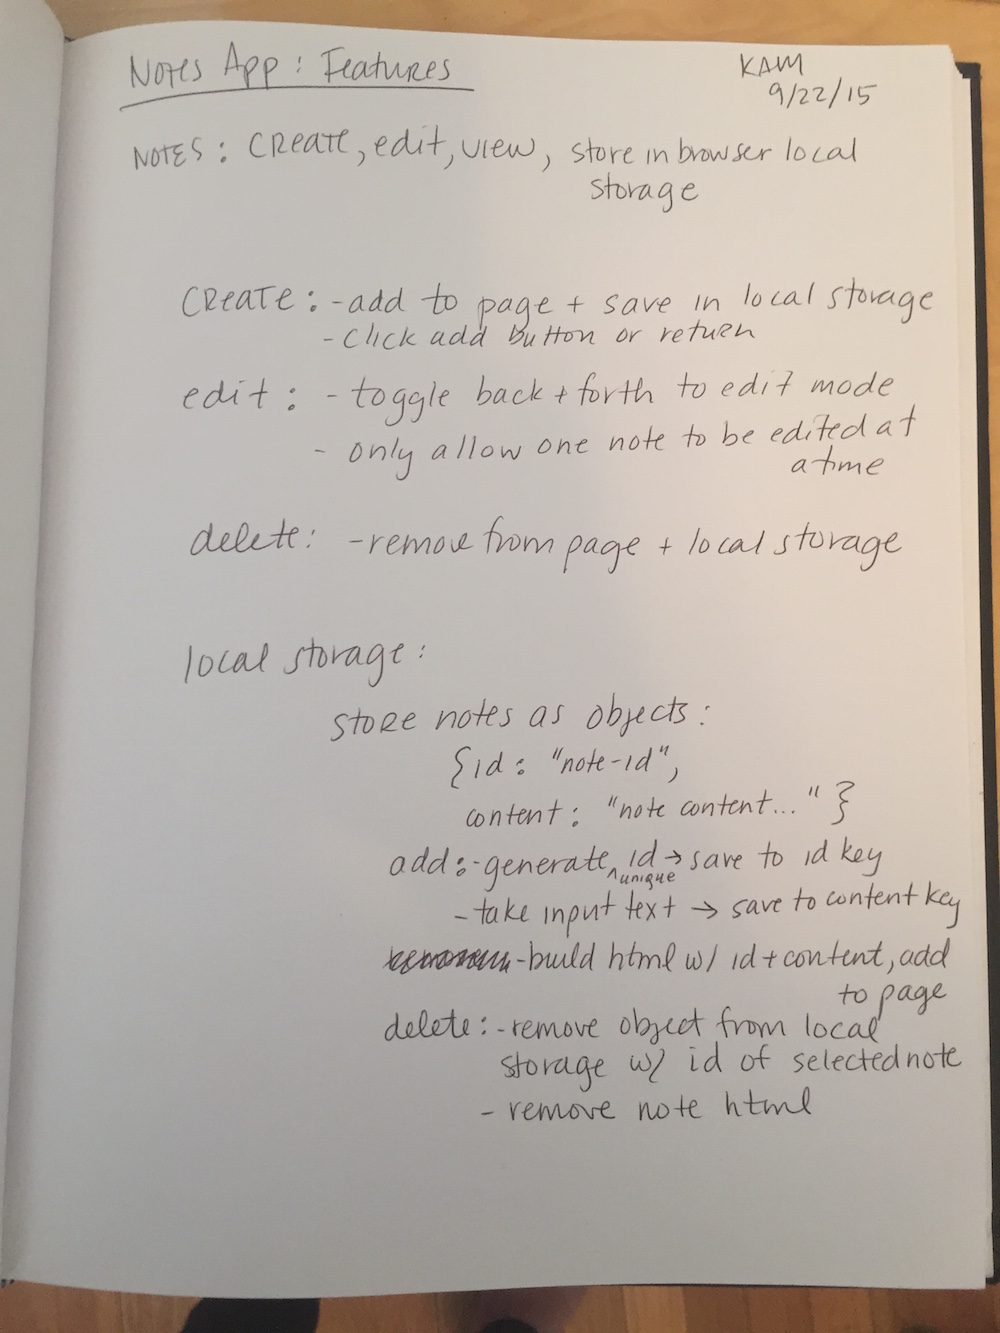 Notes App: Features
KAM
9/22/15
NOTES: CREATE, edit, view, store in browser local
storage
CREATE: -add to page + save in local storage
- click add button or return
edit: - toggle back + forth to edit mode
- only allow one note to be edited at
a time
delete: -remove from page + local storage
local storage:
store notes as objects:
{id: "note-id",
content: "note content..." }
add: -generate ^unique id → save to id key
- take input text → save to content key
-build html w/ id + content, add
to page
delete: -remove object from local
storage w/ id of selected note
- remove note html